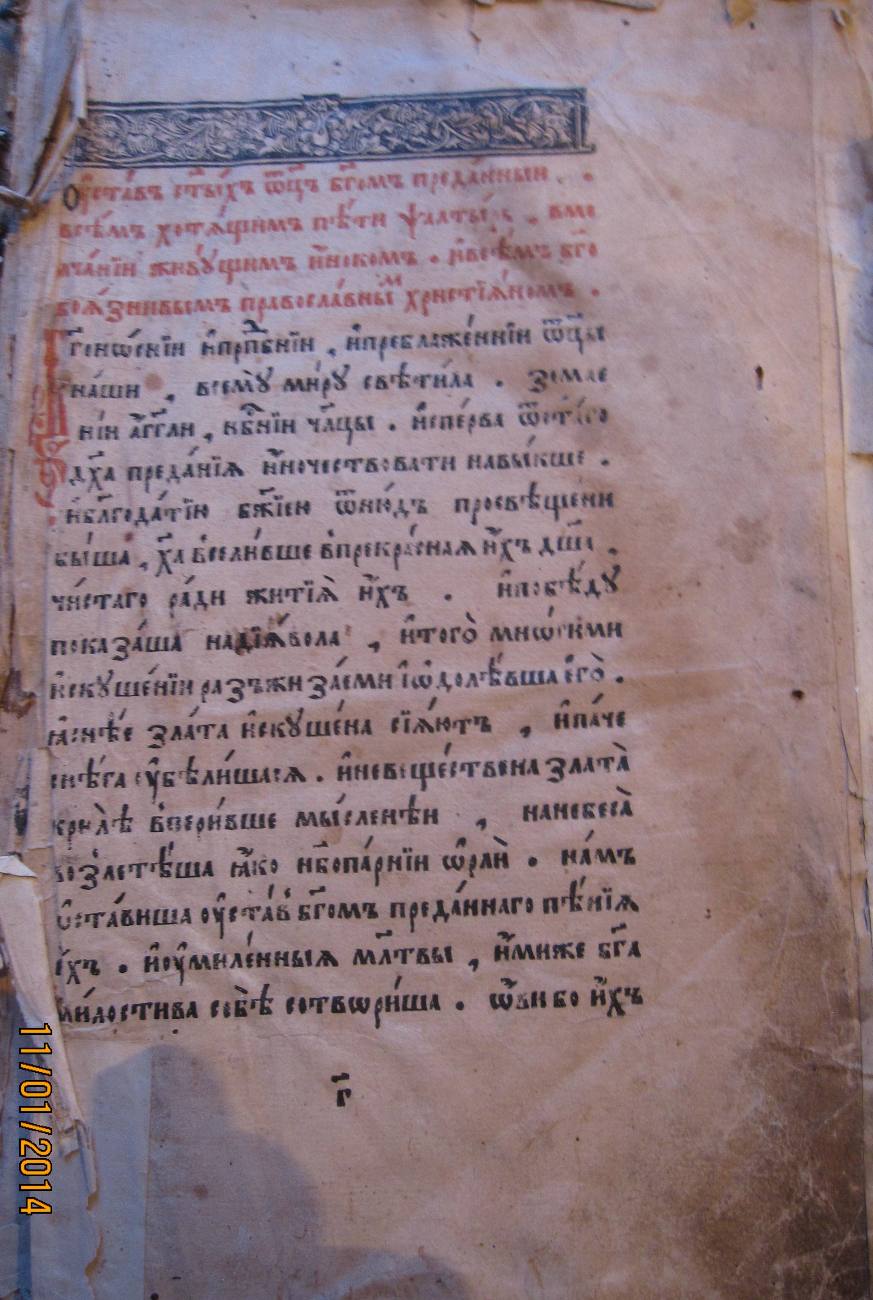 оуста́въ ст҃ы́хъ ѿц҃ъ бг҃омъ преда́нный .
всѣ́мъ хотѧ́щимъ пѣ́ти ѱалты́рь . вмо
лча́нїи живꙋ́щимъ и҆́нокомъ . и҆всѣ́мъ бг҃о
боѧ́знивымъ правосла́вны́м христїѧ́номъ .
Пⷬ҇геносе́нїи и҆прпⷣбнїи , и҆преблаже́ннїи ѿц҃ы
на́ши , всемꙋ̀ ми́рꙋ свѣти́ла . земле
нїи а҆́гг҃ли , нбⷭ҇нїи чл҃цы . и҆спе́рва ѿст҃а́го
дх҃а преда́нїѧ и҆́ночествовати навы́кше .
и҆бл҃года́тїю бж҃їею ѿню́дъ просвѣще́ни
бы́ша , хⷭ҇а всели́вше впрекра́снаѧ и҆́хъ дш҃а .
чи́стаго ра́ди житїѧ̀ и҆́хъ . и҆побѣ́дꙋ
показа́ша надїѧ́вола , и҆того̀ мно́гими
и҆скꙋше́нїи разъжиза́еми і҆ѡ҆долѣ́вша є҆го̀ .
ꙗ҆́снѣе зла́та и҆скꙋше́на сїѧ́ютъ , и҆па́че
снѣ́га оу҆бѣли́шасѧ . и҆невеще́ствена злата̀
крилѣ̀ впери́вше мы́сленѣи , нанебеса̀
возлетѣ́ша ꙗ҆́ко нб҃опа́рнїи ѡ҆рлѝ . на́мъ
ѡ҆ста́виша оу҆ста́в бг҃омъ преда́ннаго пѣ́нїѧ
и҆́хъ . и҆оу҆миле́нныѧ мл҃твы , и҆́миже бг҃а
ми́лостива собѣ̀ сотвори́ша . ѻ҆́ви бо и҆́хъ
г҃
11/01/2014